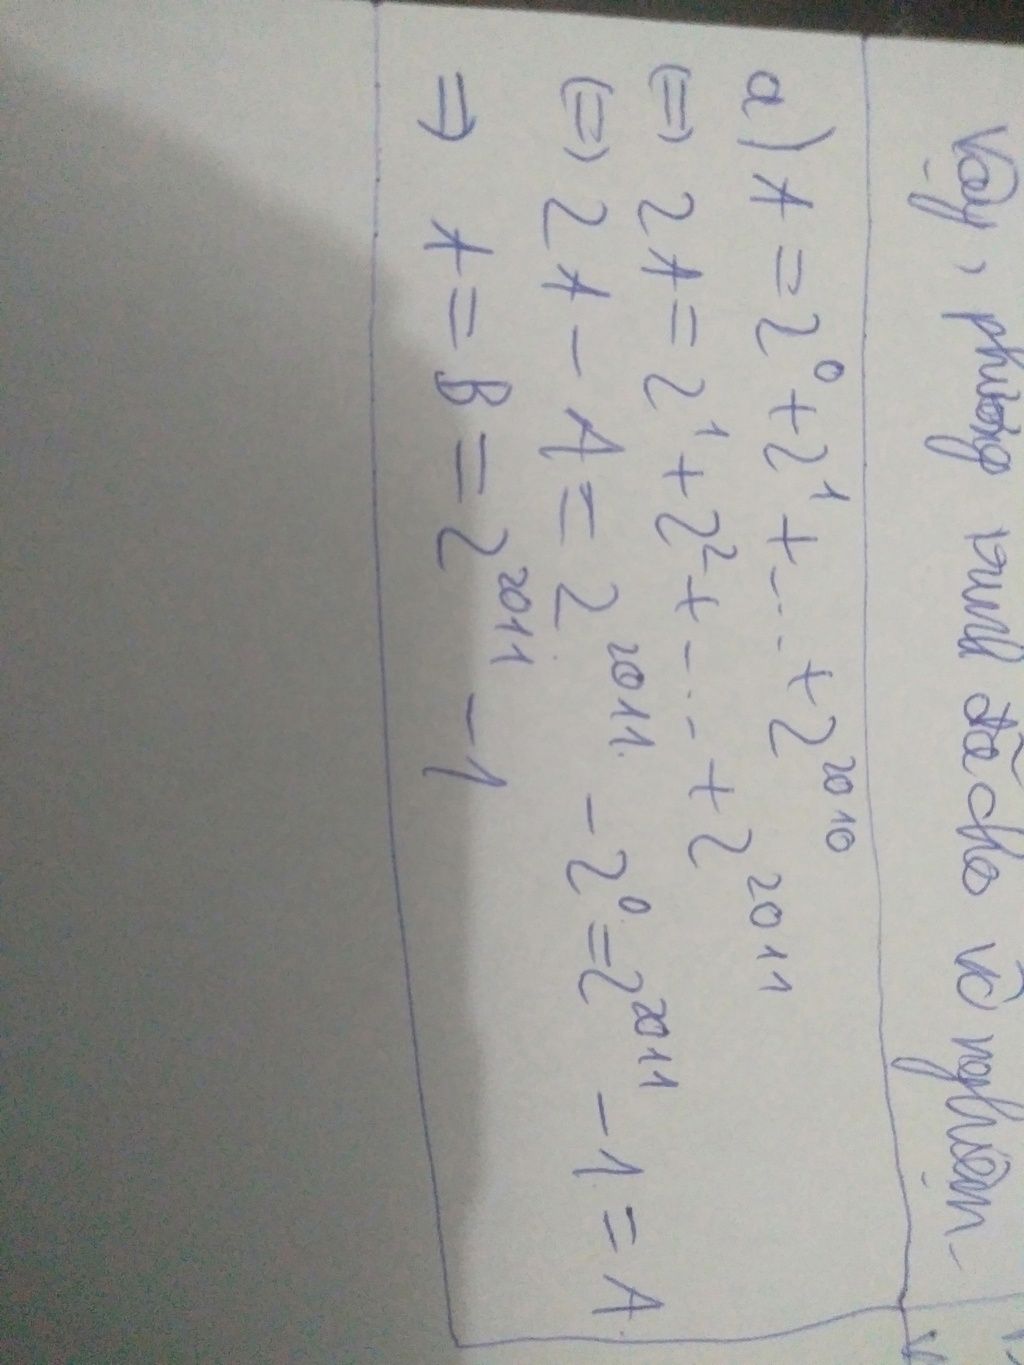 Vậy, phương trình đã cho vô nghiệm
a) A = 2⁰ + 2¹ + ... + 2²⁰¹⁰
(=) 2A = 2¹ + 2² + ... + 2²⁰¹¹
(=) 2A - A = 2²⁰¹¹ - 2⁰ = 2²⁰¹¹ - 1 = A
=) A = B = 2²⁰¹¹ - 1